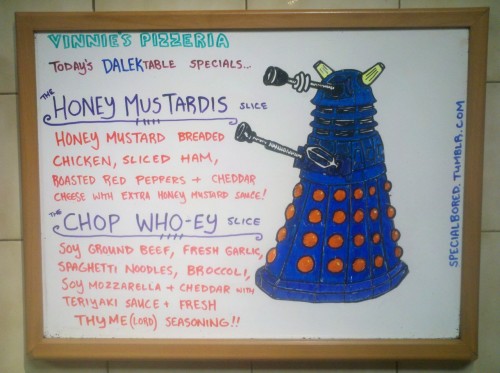 VINNIE'S PIZZERIA
TODAY'S DALEKTABLE SPECIALS...
THE HONEY MUSTARDIS SLICE
HONEY MUSTARD BREADED
CHICKEN, SLICED HAM,
ROASTED RED PEPPERS + CHEDDAR
CHEESE WITH EXTRA HONEY MUSTARD SAUCE!
THE CHOP WHO-EY SLICE
SOY GROUND BEEF, FRESH GARLIC,
SPAGHETTI NOODLES, BROCCOLI,
SOY MOZZARELLA + CHEDDAR WITH
TERIYAKI SAUCE + FRESH
THYME (LORD) SEASONING!!
SPECIALBORED.TUMBLR.COM